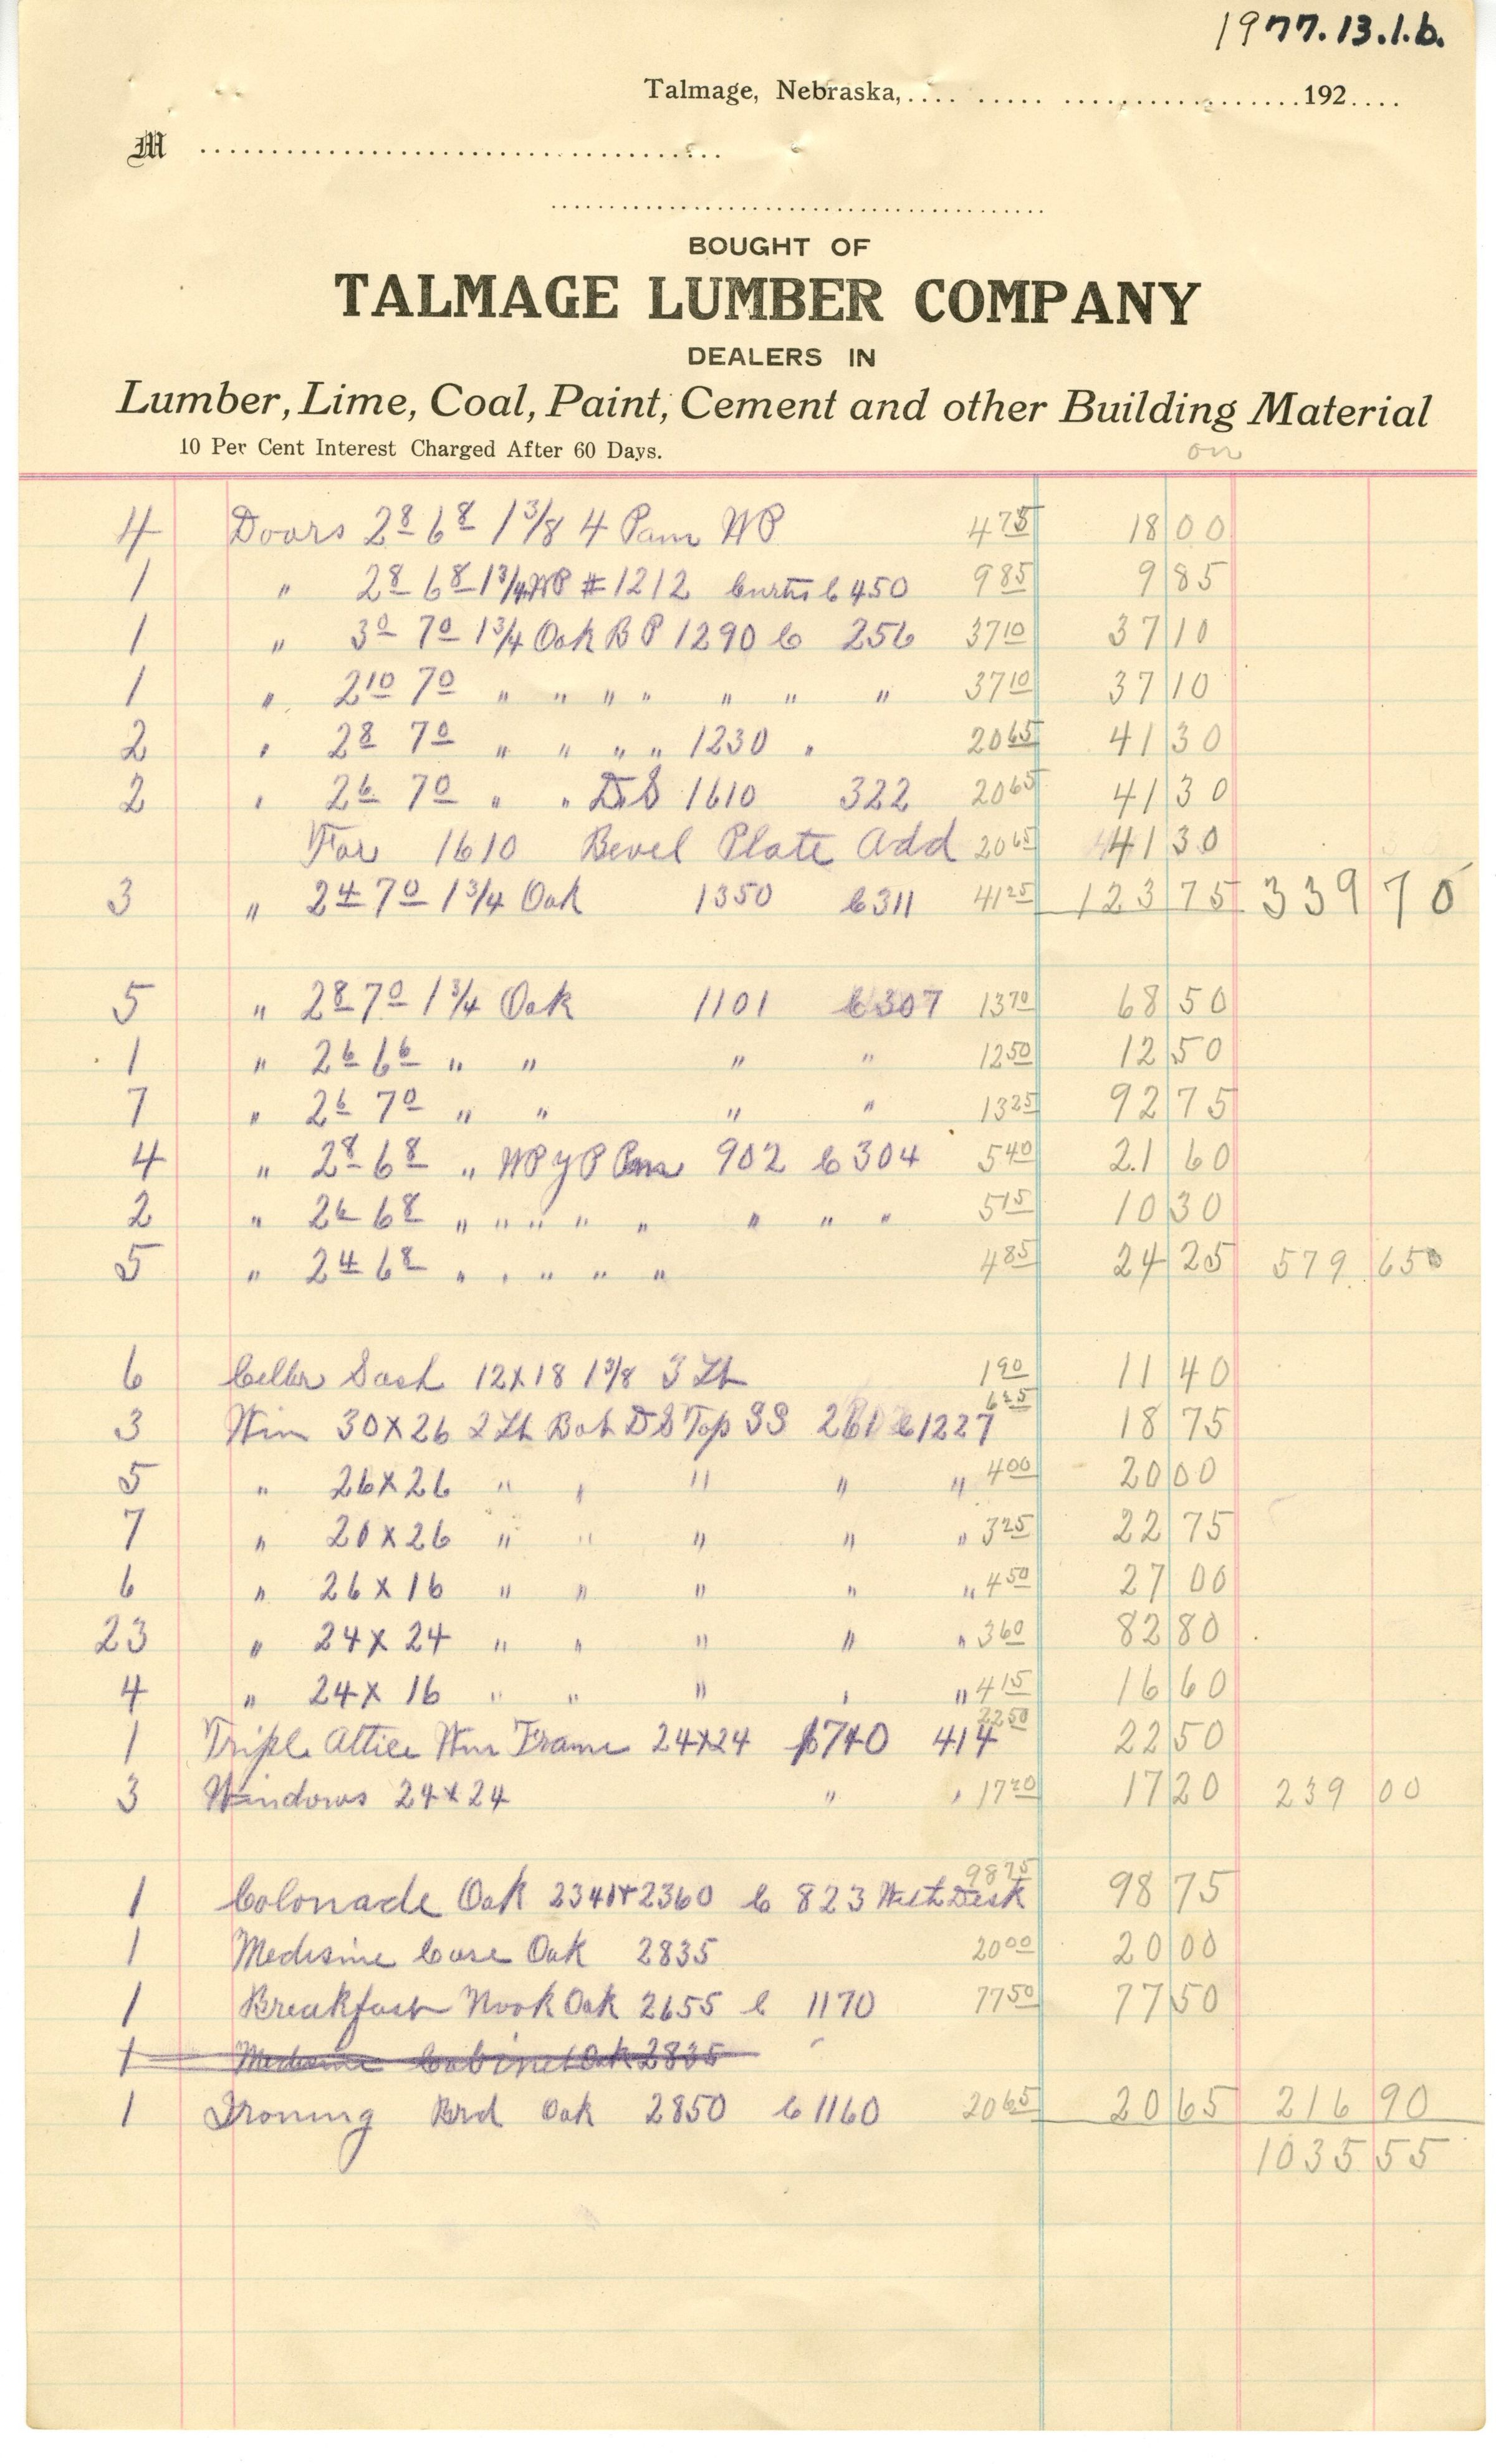 1977.13.1.b.
Talmage, Nebraska, 192
M
BOUGHT OF
TALMAGE LUMBER COMPANY
DEALERS IN
Lumber, Lime, Coal, Paint, Cement and other Building Material
10 Per Cent Interest Charged After 60 Days.
on
4 Doors 2 8 6 8 1 3/8 4 Pan WP 4 75 18 00
1 " 2 8 6 8 1 3/4 WP # 1212 Curtis C 450 9 85 9 85
1 " 3 0 7 0 1 3/4 Oak B P 1290 C 256 37 10 37 10
1 " 2 10 7 0 " " " " " " " 37 10 37 10
2 " 2 8 7 0 " " " " 1230 " 20 65 41 30
2 " 2 6 7 0 " " D.S 1610 322 20 65 41 30
For 1610 Bevel Plate Add 20 65 41 30
3 " 2 4 7 0 1 3/4 Oak 1350 C 311 41 25 123 75 339 70
5 " 2 8 7 0 1 3/4 Oak 1101 C 307 13 70 68 50
1 " 2 6 6 6 " " " " 12 50 12 50
7 " 2 6 7 0 " " " " 13 25 92 75
4 " 2 8 6 8 " WP YP Pan 902 C 304 5 40 21 60
2 " 2 6 6 8 " " " " " " " " 5 15 10 30
5 " 2 4 6 8 " " " " " 4 85 24 25 579 650
6 Celler Sash 12X18 1 3/8 3 Lt 1 90 11 40
3 Win 30X26 2 Lt Bot DS Top SS 2610 C 1227 6 25 18 75
5 " 26X26 " " " " " 4 00 20 00
7 " 20X26 " " " " " 3 25 22 75
6 " 26X16 " " " " " 4 50 27 00
23 " 24X24 " " " " " 3 60 82 80
4 " 24X16 " " " " " 4 15 16 60
1 Triple Attice Win Frame 24X24 6740 414 22 50 22 50
3 Windows 24X24 " " 17 20 17 20 239 00
1 Colonade Oak 2341+2360 C 823 With Desk 98 75 98 75
1 Medisine Case Oak 2835 20 00 20 00
1 Breakfast Nook Oak 2655 C 1170 77 50 77 50
1 Medisine Cabinet Oak 2835
1 Ironing Brd Oak 2850 C 1160 20 65 20 65 216 90
1035 55